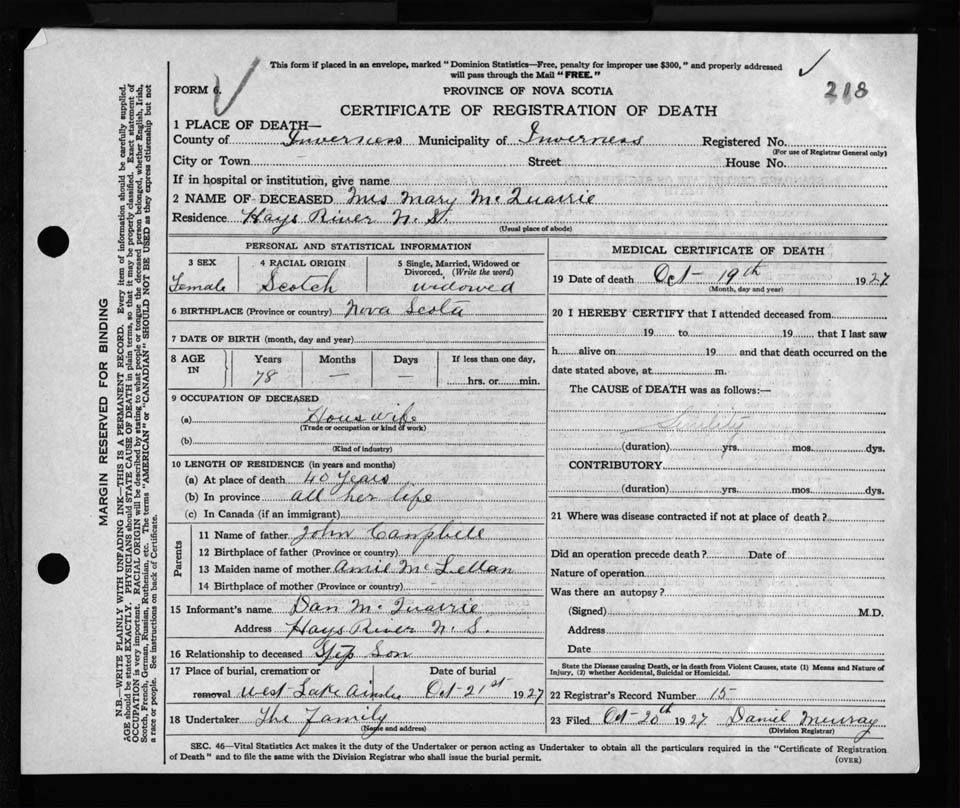 This form if placed in an envelope, marked "Dominion Statistics—Free, penalty for improper use $300," and properly addressed
will pass through the Mail "FREE."
218
FORM 6.
PROVINCE OF NOVA SCOTIA
CERTIFICATE OF REGISTRATION OF DEATH
1 PLACE OF DEATH—
County of Inverness Municipality of Inverness Registered No.
(For use of Registrar General only)
City or Town Street House No.
If in hospital or institution, give name
2 NAME OF DECEASED Mrs Mary McQuarrie
Residence Hays River N. S.
(Usual place of abode)
PERSONAL AND STATISTICAL INFORMATION
3 SEX 4 RACIAL ORIGIN 5 Single, Married, Widowed or
Divorced, (Write the word)
Female Scotch widowed
6 BIRTHPLACE (Province or country) Nova Scota
7 DATE OF BIRTH (month, day and year)
8 AGE IN Years Months Days If less than one day,
78 — — hrs. or min.
9 OCCUPATION OF DECEASED
(a) Houswife
(Trade or occupation or kind of work)
(b)
(Kind of industry)
10 LENGTH OF RESIDENCE (in years and months)
(a) At place of death 40 years
(b) In province all her life
(c) In Canada (if an immigrant)
Parents
11 Name of father John Canpbell
12 Birthplace of father (Province or country)
13 Maiden name of mother Amie McLellan
14 Birthplace of mother (Province or country)
15 Informant's name Dan McQuarrie
Address Hays River N. S.
16 Relationship to deceased Step Son
17 Place of burial, cremation or Date of burial
removal West Lake Ainslie Oct-21st 1927
18 Undertaker The Family
(Name and address)
MEDICAL CERTIFICATE OF DEATH
19 Date of death Oct- 19th 1927
(Month, day and year)
20 I HEREBY CERTIFY that I attended deceased from
19 to 19 , that I last saw
h alive on 19 and that death occurred on the
date stated above, at m.
The CAUSE of DEATH was as follows:—
Senility
(duration) yrs. mos. dys.
CONTRIBUTORY
(duration) yrs. mos. dys.
21 Where was disease contracted if not at place of death?
Did an operation precede death? Date of
Nature of operation
Was there an autopsy?
(Signed) M.D.
Address
Date
State the Disease causing Death, or in death from Violent Causes, state (1) Means and Nature of
Injury, (2) whether Accidental, Suicidal or Homicidal.
22 Registrar's Record Number 15
23 Filed Oct-20th 1927 Daniel Murray
(Division Registrar)
SEC. 46—Vital Statistics Act makes it the duty of the Undertaker or person acting as Undertaker to obtain all the particulars required in the "Certificate of Registration
of Death" and to file the same with the Division Registrar who shall issue the burial permit.
(OVER)
MARGIN RESERVED FOR BINDING
N.B.—WRITE PLAINLY WITH UNFADING INK—THIS IS A PERMANENT RECORD. Every item of information should be carefully supplied.
AGE should be stated EXACTLY. PHYSICIANS should STATE CAUSE OF DEATH in plain terms, so that it may be properly classified. Exact statement of
OCCUPATION is very important. RACIAL ORIGIN will be described by stating to what people or tongue the deceased person belonged, whether English, Irish,
Scotch, French, German, Russian, Ruthenian, etc. The terms "AMERICAN" or "CANADIAN" SHOULD NOT BE USED as they express citizenship but not
a race or people. See instructions on back of Certificate.